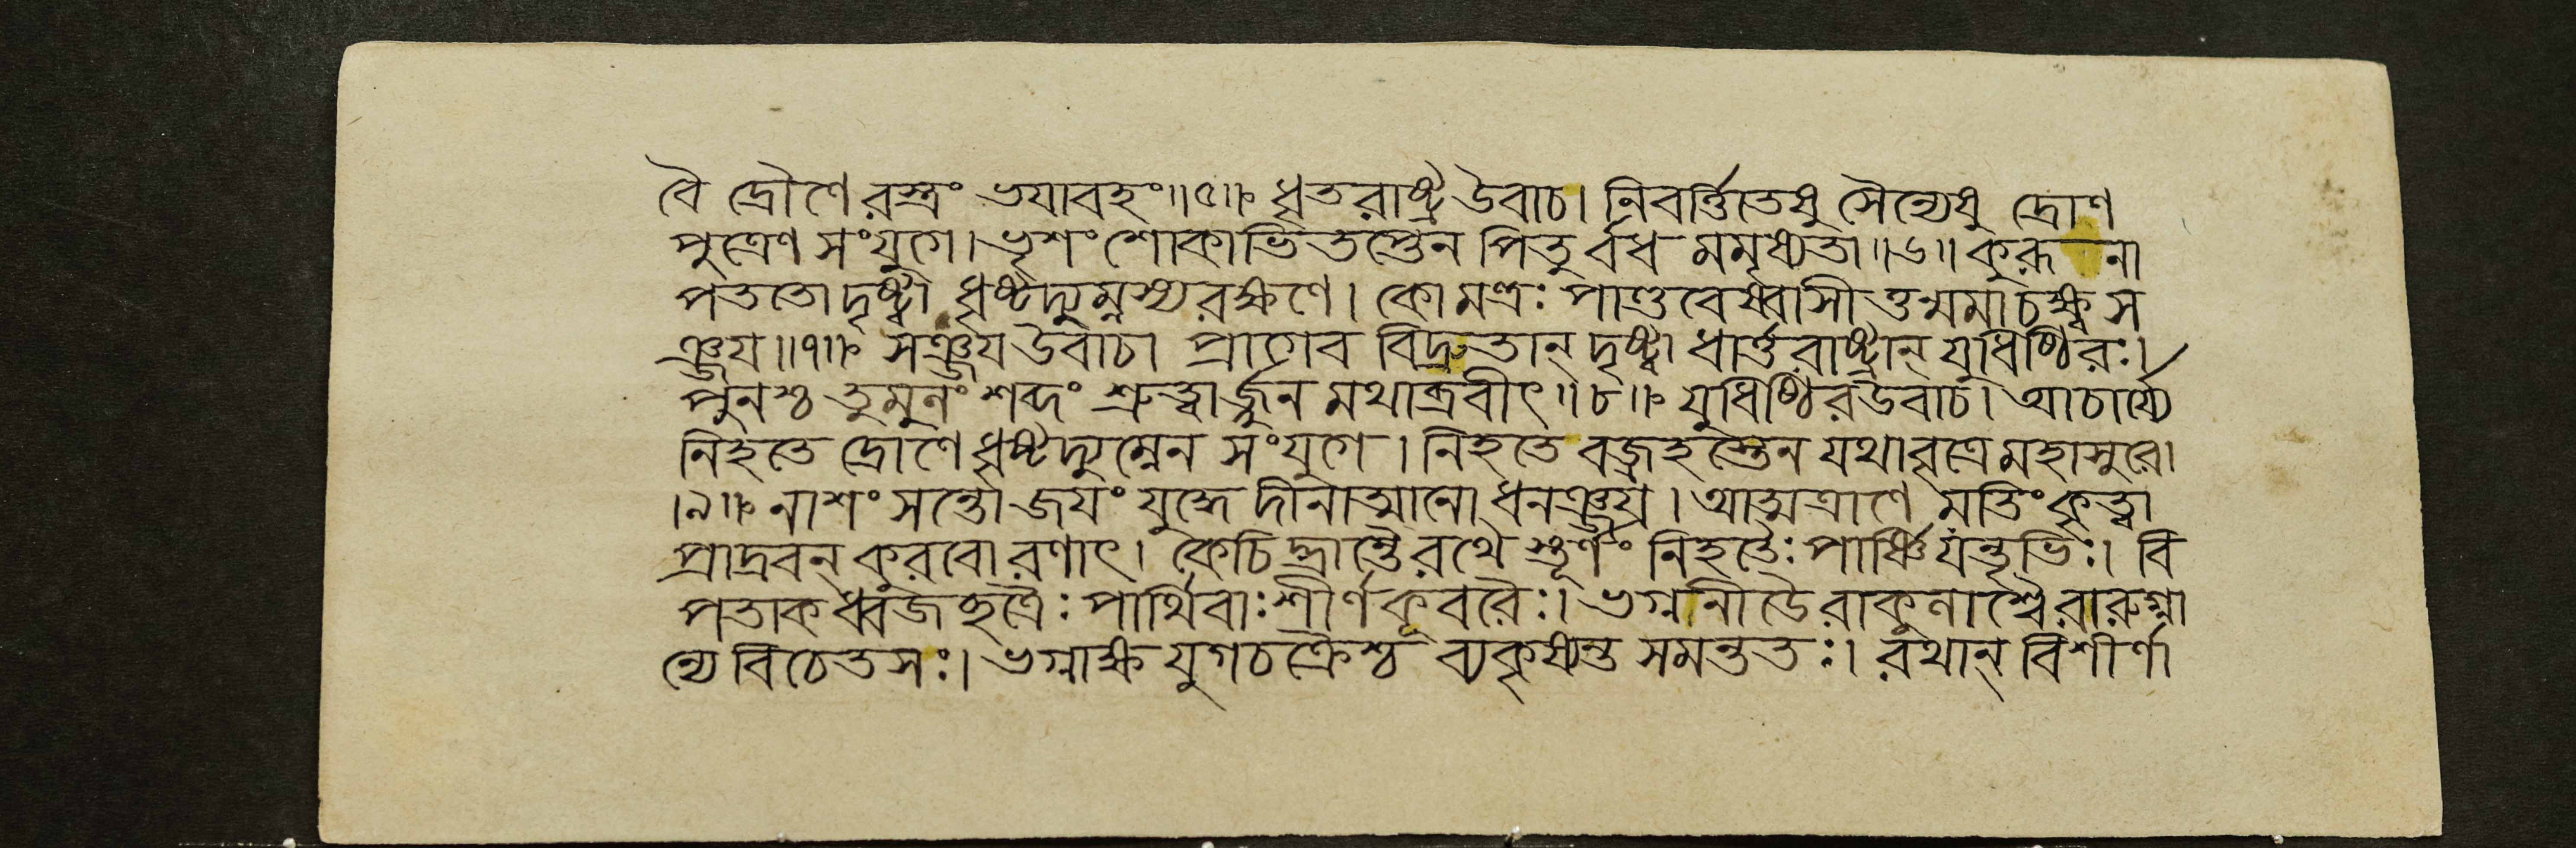 বৈ দ্রৌণেরস্ত্রং ভযাবহং॥৫॥ ধৃতরাষ্ট্র উবাচ। নিবর্ত্তিতেষু সৈন্যেষু দ্রোণ
পুত্রেণ সংযুগে। ভৃশং শোকাভিতপ্তেন পিতুর্বধমমৃষ্যতা॥৬॥ কুরূনা
পততো দৃষ্ট্বা ধৃষ্টদ্যুম্নস্য রক্ষণে। কো মন্ত্রঃ পাণ্ডবেষ্বাসীত্তন্মমাচক্ষ্ব স
ঞ্জয॥৭॥ সঞ্জয উবাচ। প্রাগেব বিদ্রুতান্ দৃষ্ট্বা ধার্ত্তরাষ্ট্রান্ যুধিষ্ঠিরঃ।
পুনশ্চ তুমুলং শব্দং শ্রুত্বার্জ্জুনমথাব্রবীৎ॥৮॥ যুধিষ্ঠির উবাচ। আচার্য্যে
নিহতে দ্রোণে ধৃষ্টদ্যুম্নেন সংযুগে। নিহতে বজ্রহস্তেন যথা বৃত্রে মহাসুরে।
।৯॥ নাশং সন্তো জযং যুদ্ধে দীনাত্মানো ধনঞ্জয। আত্মত্রাণে মতিং কৃত্বা
প্রাদ্রবন্ কুরবো রণাৎ। কেচিদ্ভ্রান্তৈ রথৈস্তূর্ণং নিহতৈঃ পার্ষ্ণিযন্তৃভিঃ। বি
পতাকধ্বজছত্রৈঃ পার্থিবাঃ শীর্ণকূবরৈঃ। ভগ্ননীডৈরাকুলাশ্বৈরারুগ্না
ন্যে বিচেতসঃ। ভগ্নাক্ষযুগচক্রৈশ্চ ব্যকৃষ্যন্ত সমন্ততঃ। রথান্ বিশীর্ণা